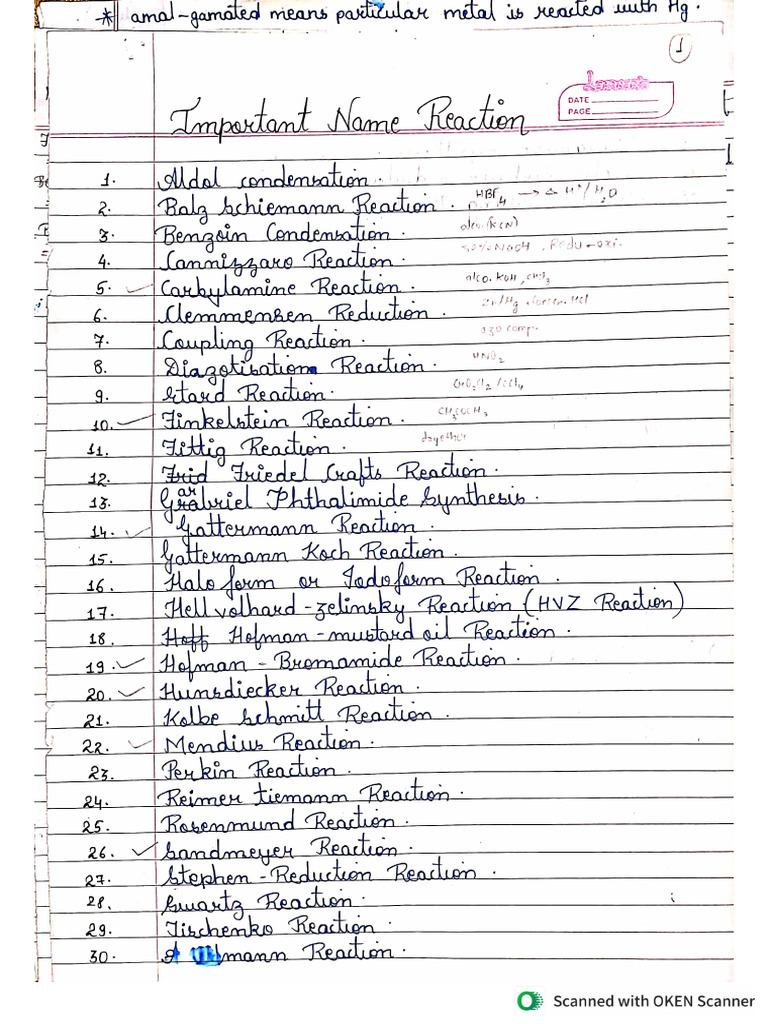 * amal-gamated means particular metal is reacted with Hg.
1
DATE
PAGE
Important Name Reaction
1. Aldol condensation.
2. Balz Schiemann Reaction. HBF4 → Δ H+/H2O
3. Benzoin Condensation. alco.(KCN)
4. Cannizzaro Reaction. 50% NaOH. Redu-oxi.
5. ✓ Carbylamine Reaction. alco. KOH, CHCl3
6. Clemmensen Reduction. Zn/Hg concen. HCl
7. Coupling Reaction.
8. Diazotisation Reaction. HNO2
9. Etard Reaction. CrO2Cl2/CCl4
10. ✓ Finkelstein Reaction. CH3COCH3
11. Fittig Reaction. dryether
12. Frid Friedel Crafts Reaction.
13. Gabriel Phthalimide Synthesis.
14. ✓ Gattermann Reaction.
15. Gattermann Koch Reaction.
16. Halo form or Iodoform Reaction.
17. Hell volhard-zelinsky Reaction (HVZ Reaction)
18. Hoff Hofman-mustard oil Reaction.
19. ✓ Hofman - Bromamide Reaction.
20. ✓ Hunsdiecker Reaction.
21. Kolbe Schmitt Reaction.
22. ✓ Mendius Reaction.
23. Perkin Reaction.
24. Reimer tiemann Reaction.
25. Rosenmund Reaction.
26. ✓ Sandmeyer Reaction.
27. Stephen-Reduction Reaction.
28. Swartz Reaction.
29. Tischenko Reaction.
30. Ullmann Reaction.
Scanned with OKEN Scanner